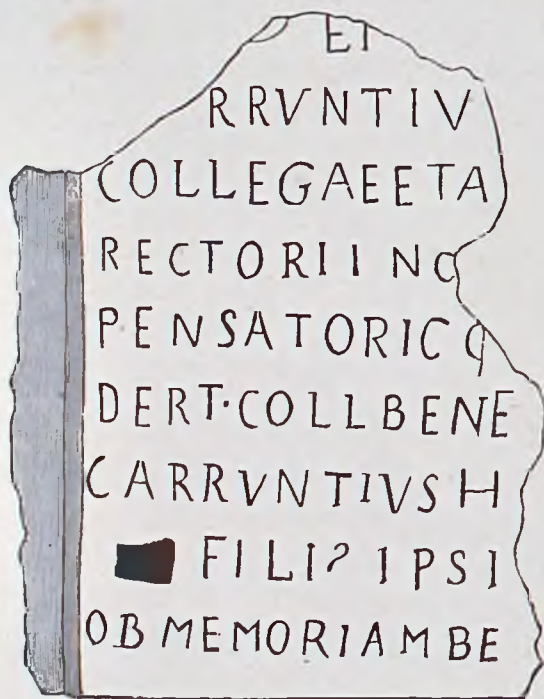 EI
RRVNTIV
COLLEGAEETA
RECTORIINC
PENSATORICC
DERT·COLLBENE
CARRVNTIVSH
FILIS IPSI
OBMEMORIAMBE